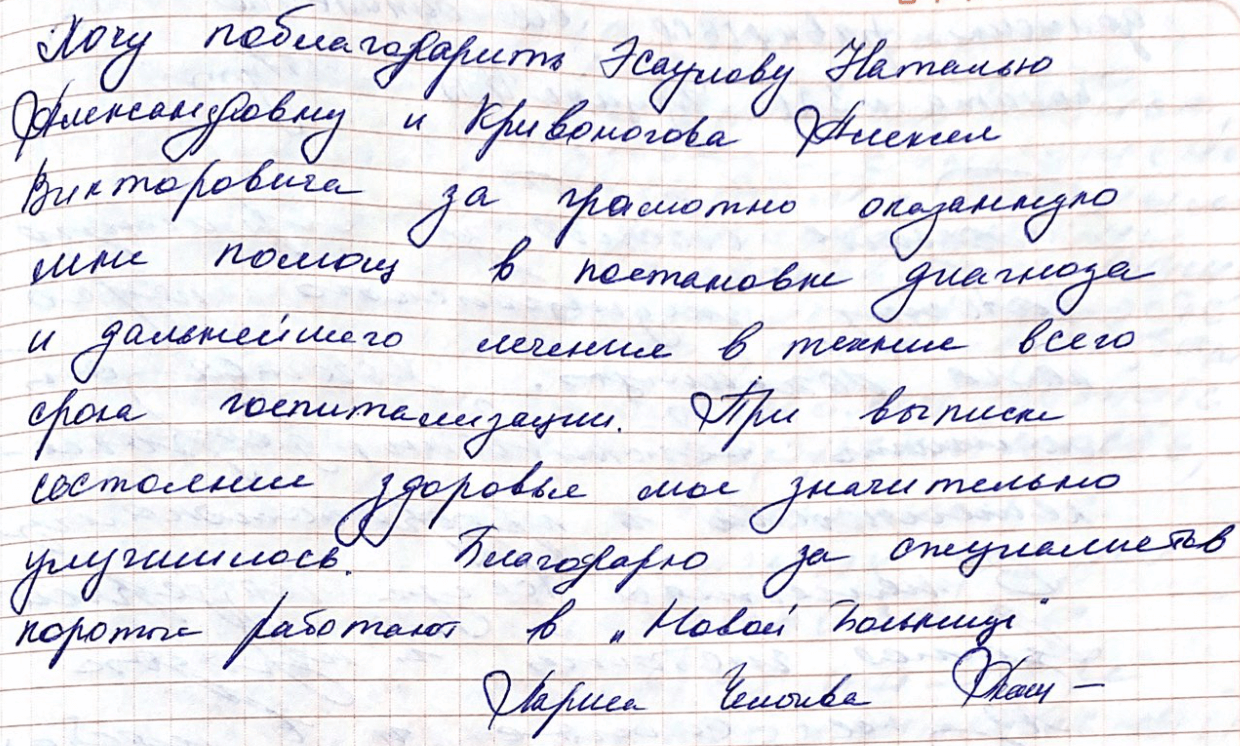 Хочу поблагодарить Эсаулову Наталью
Александровну и Кривоногова Алексея
Викторовича за грамотно оказанную
мне помощь в постановке диагноза
и дальнейшего лечение в течение всего
срока госпитализации. При выписке
состояние здоровье мое значительно
улучшилось. Благодарю за специалистов
которые работают в „Новой Больнице"
Лариса